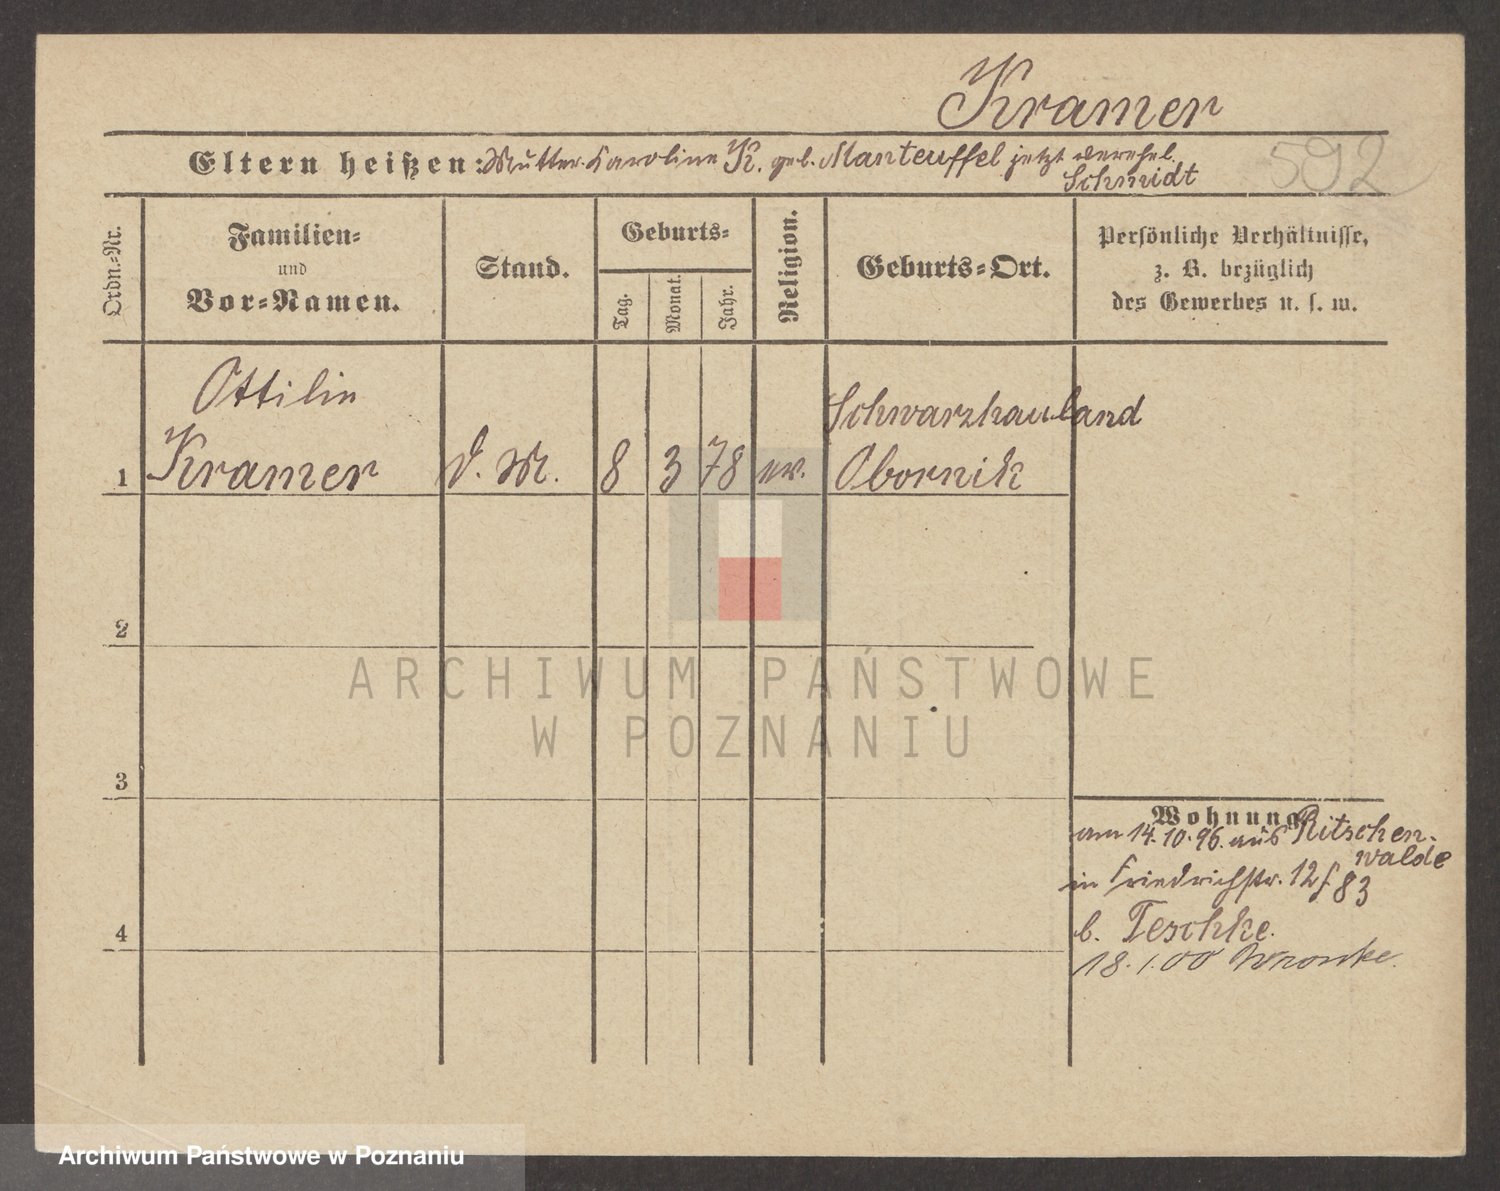 Kramer
Eltern heißen: Mutter: Karoline K. geb. Manteuffel jetzt verehel.
Schmidt
592
Ordn.-Nr.
Familien-
und
Vor-Namen.
Stand.
Geburts-
Tag.
Monat.
Jahr.
Religion.
Geburts-Ort.
Persönliche Verhältnisse,
z. B. bezüglich
des Gewerbes u. s. w.
Ottilie
Schwarzhauland
1 Kramer D. M. 8 3 78 ev. Obornik
2
ARCHIWUM PAŃSTWOWE
W POZNANIU
3
Wohnung
am 14.10.96. aus Ritschen-
walde
in Friedrichstr. 12 f 83
4
b. Teschke.
18.1.00 Wronke.
Archiwum Państwowe w Poznaniu